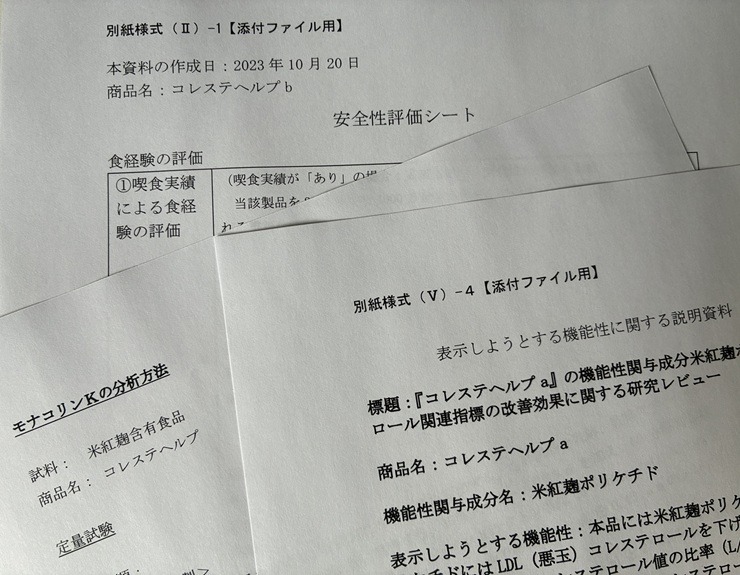 別紙様式（Ⅱ）-1【添付ファイル用】
本資料の作成日：2023 年 10 月 20 日
商品名：コレステヘルプ b
安全性評価シート
食経験の評価
①喫食実績
による食経
験の評価
（喫食実績が「あり」の場
当該製品を
れる
別紙様式（Ⅴ）-4【添付ファイル用】
表示しようとする機能性に関する説明資料
標題：『コレステヘルプ a』の機能性関与成分米紅麹ポ
ロール関連指標の改善効果に関する研究レビュー
商品名：コレステヘルプ a
機能性関与成分名：米紅麹ポリケチド
表示しようとする機能性：本品には米紅麹ポリケ
チドには LDL（悪玉）コレステロールを下げ
ステロール値の比率（L/
ステロー
モナコリンKの分析方法
試料： 米紅麹含有食品
商品名： コレステヘルプ
定量試験